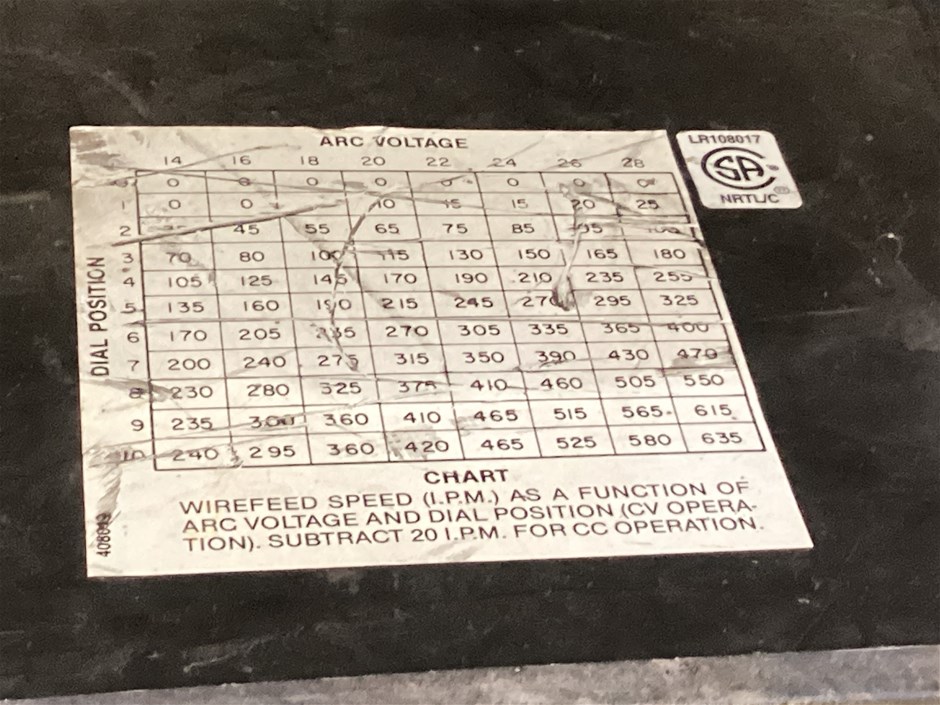 ARC VOLTAGE
14 16 18 20 22 24 26 28
0 0 0 0 0 0 0 0
1 0 0 10 15 15 20 25
2 45 55 65 75 85 95
3 70 80 100 115 130 150 165 180
4 105 125 145 170 190 210 235 255
5 135 160 190 215 245 270 295 325
6 170 205 235 270 305 335 365 400
7 200 240 275 315 350 390 430 470
8 230 280 325 375 410 460 505 550
9 235 300 360 410 465 515 565 615
10 240 295 360 420 465 525 580 635
DIAL POSITION
CHART
WIREFEED SPEED (I.P.M.) AS A FUNCTION OF
ARC VOLTAGE AND DIAL POSITION (CV OPERA-
TION). SUBTRACT 20 I.P.M. FOR CC OPERATION.
LR108017
SA
®
NRTL/C